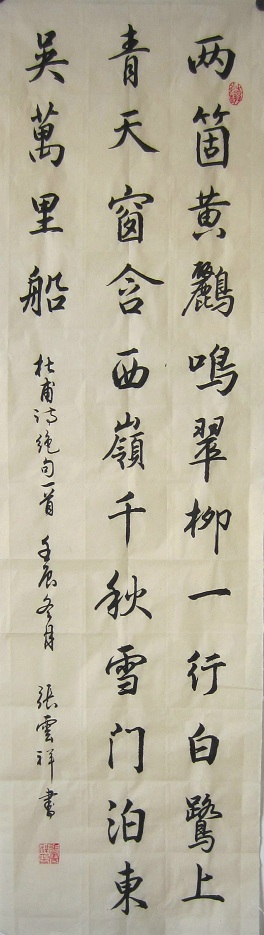 两箇黄鸝鳴翠柳一行白鷺上
青天窗含西嶺千秋雪门泊東
吳萬里船
杜甫诗绝句一首 壬辰冬月 張雲祥書